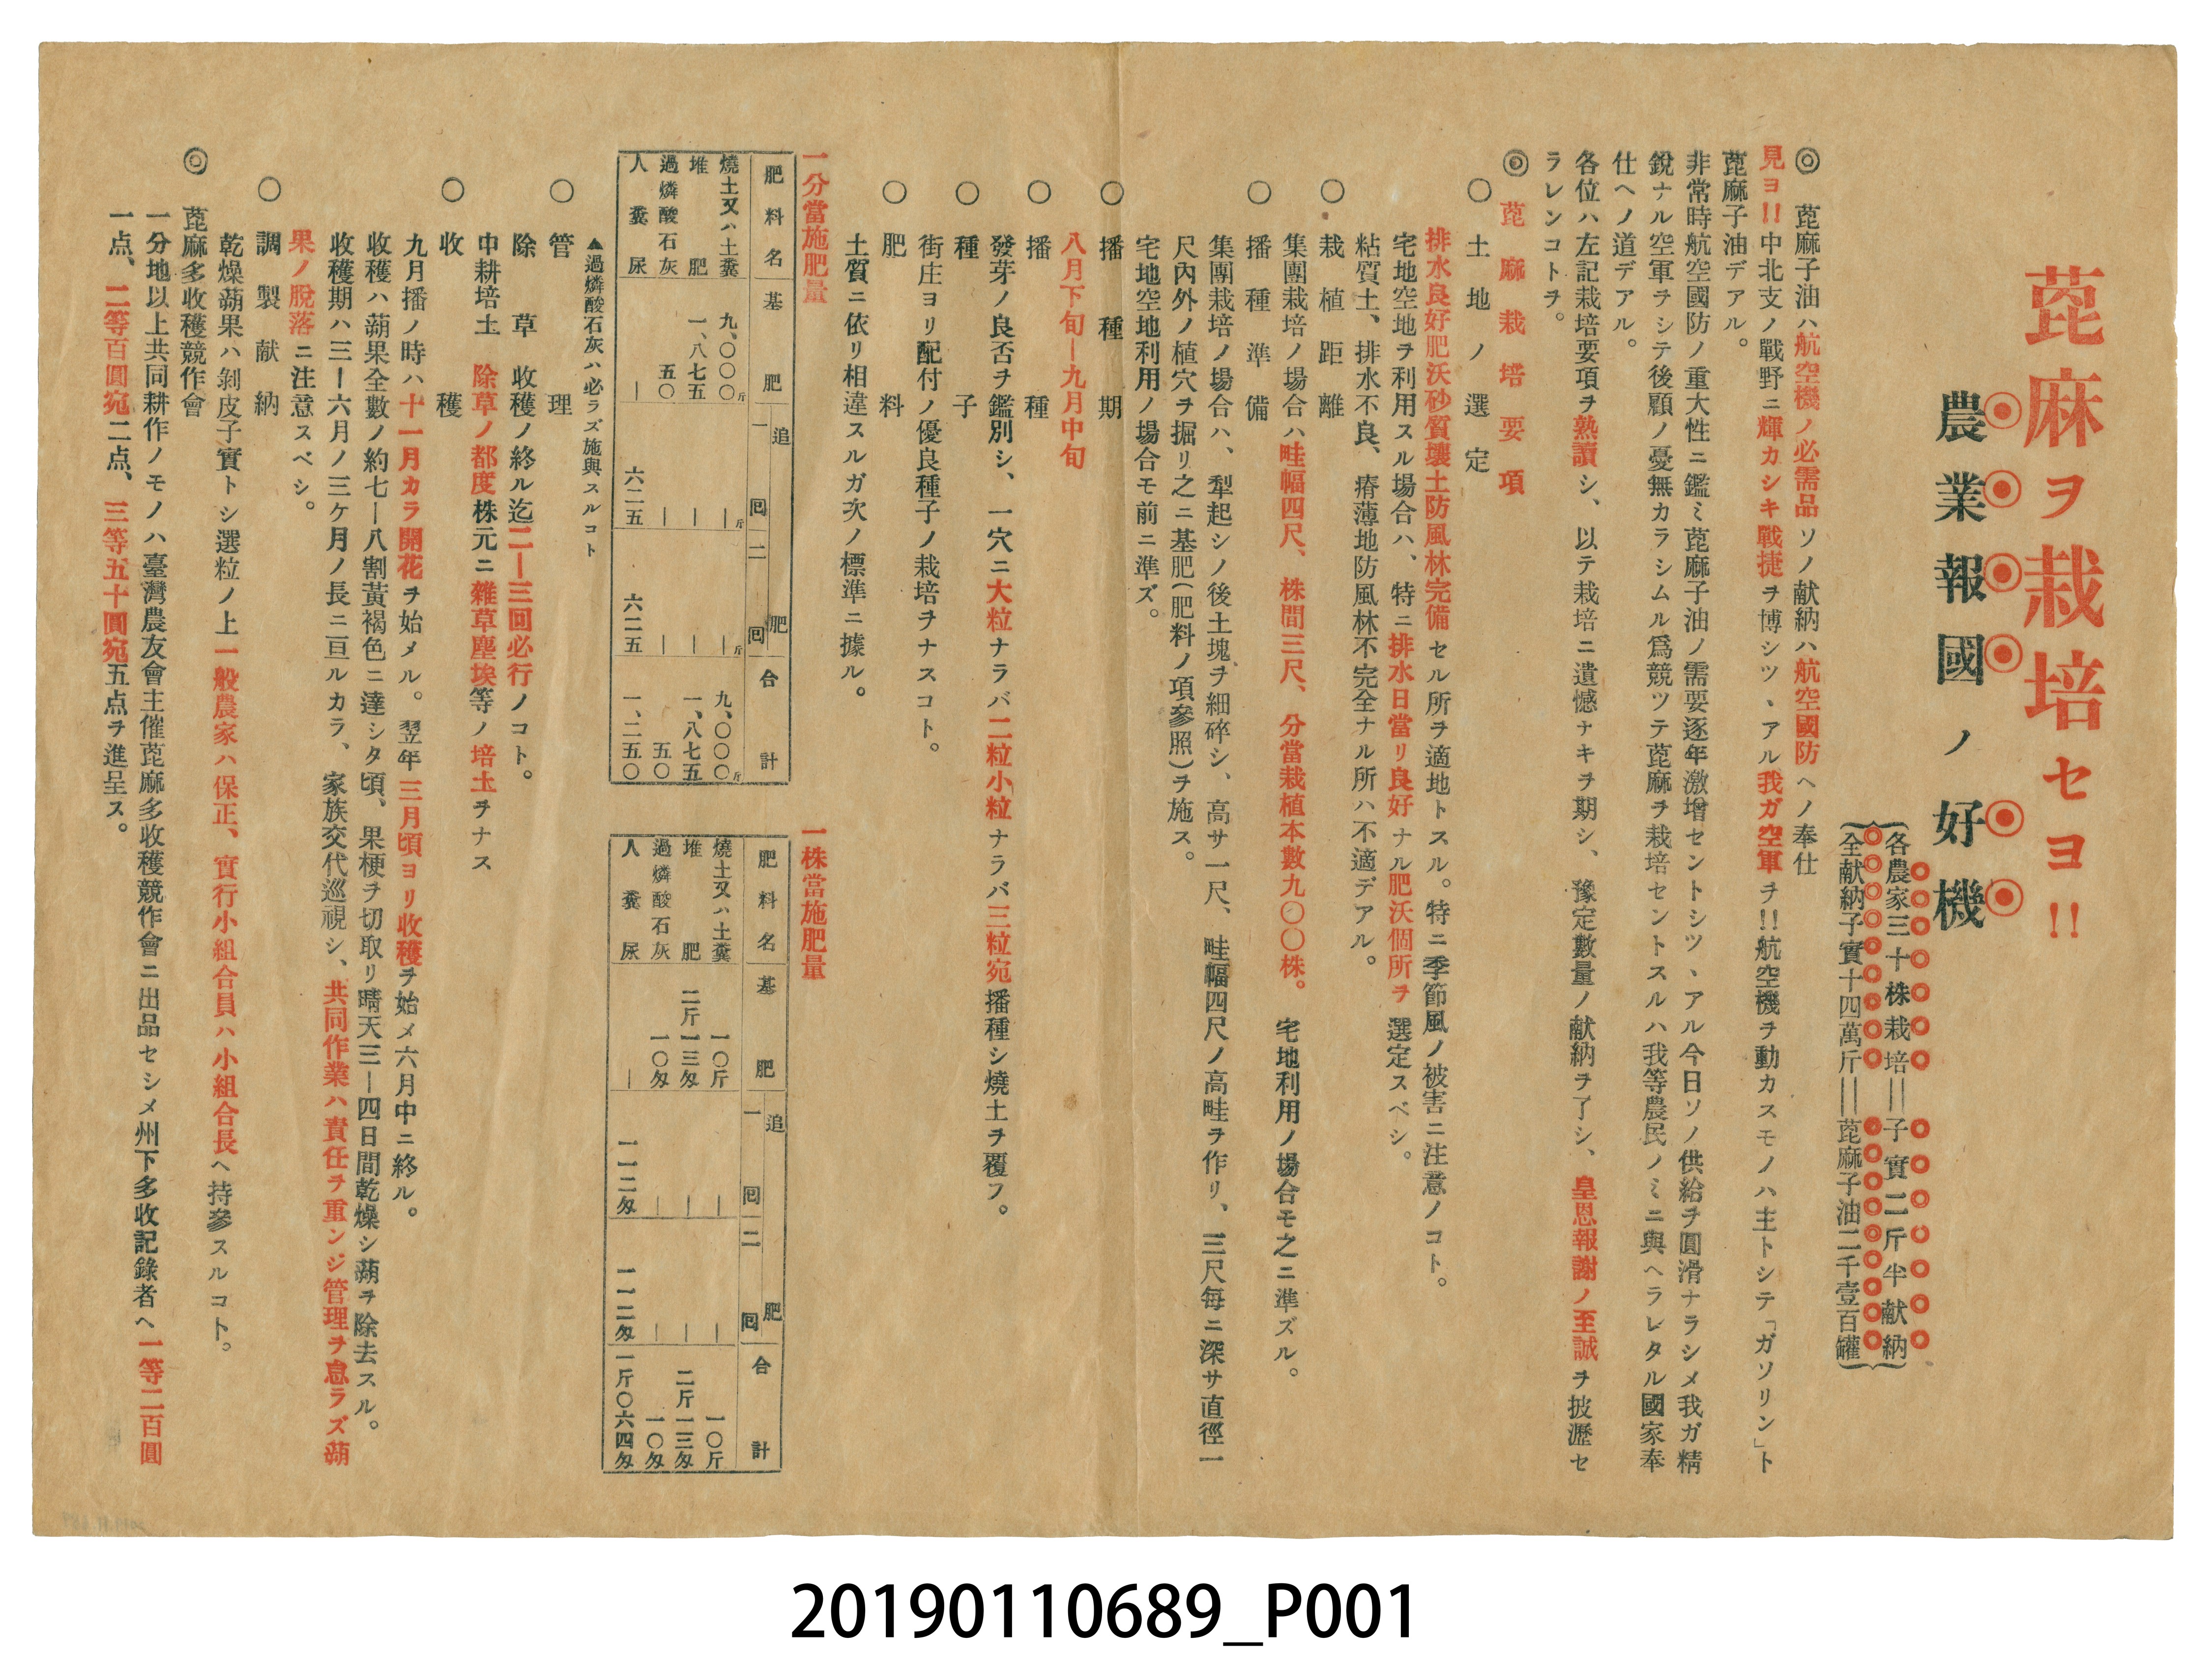 蓖麻ヲ栽培セヨ!!
農業報國ノ好機
各農家三十株栽培＝子實二斤半献納
全献納子實十四萬斤＝蓖麻子油二千壹百罐
◎ 蓖麻子油ハ航空機ノ必需品 ソノ献納ハ航空國防ヘノ奉仕
見ヨ!!中北支ノ戰野ニ輝カシキ戰捷ヲ博シツヽアル我ガ空軍ヲ!!航空機ヲ動カスモノハ主トシテ「ガソリン」ト
蓖麻子油デアル。
非常時航空國防ノ重大性ニ鑑ミ蓖麻子油ノ需要逐年激增セントシツヽアル今日ソノ供給ヲ圓滑ナラシメ我ガ精
銳ナル空軍ヲシテ後顧ノ憂無カラシムル爲競ツテ蓖麻ヲ栽培セントスルハ我等農民ノミニ與ヘラレタル國家奉
仕ヘノ道デアル。
各位ハ左記栽培要項ヲ熟讀シ、以テ栽培ニ遺憾ナキヲ期シ、豫定數量ノ献納ヲ了シ、皇恩報謝ノ至誠ヲ披瀝セ
ラレンコトヲ。
◎ 蓖麻栽培要項
○ 土地ノ選定
排水良好肥沃砂質壤土防風林完備セル所ヲ適地トスル。特ニ季節風ノ被害ニ注意ノコト。
宅地空地ヲ利用スル場合ハ、特ニ排水日當リ良好ナル肥沃個所ヲ選定スベシ。
粘質土、排水不良、瘠薄地防風林不完全ナル所ハ不適デアル。
○ 栽植距離
集團栽培ノ場合ハ畦幅四尺、株間三尺、分當栽植本數九〇〇株。 宅地利用ノ場合モ之ニ準ズル。
○ 播種準備
集團栽培ノ場合ハ、犁起シノ後土塊ヲ細碎シ、高サ一尺、畦幅四尺ノ高畦ヲ作リ、三尺每ニ深サ直徑一
尺內外ノ植穴ヲ掘リ之ニ基肥(肥料ノ項參照)ヲ施ス。
宅地空地利用ノ場合モ前ニ準ズ。
○ 播種期
八月下旬ー九月中旬
○ 播種
發芽ノ良否ヲ鑑別シ、一穴ニ大粒ナラバ二粒小粒ナラバ三粒宛播種シ燒土ヲ覆フ。
○ 種子
街庄ヨリ配付ノ優良種子ノ栽培ヲナスコト。
○ 肥料
土質ニ依リ相違スルガ次ノ標準ニ據ル。
一分當施肥量
肥料名 基肥 追肥 一回 二回 合計
燒土又ハ土糞 九、〇〇〇斤 ｜斤 ｜斤 九、〇〇〇斤
堆肥 一、八七五 ｜ ｜ 一、八七五
過燐酸石灰 五〇 ｜ ｜ 五〇
人糞尿 ｜ 六二五 六二五 一、二五〇
一株當施肥量
肥料名 基肥 追肥 一回 二回 合計
燒土又ハ土糞 一〇斤 ｜ ｜ 一〇斤
堆肥 二斤一三匁 ｜ ｜ 二斤一三匁
過燐酸石灰 一〇匁 ｜ ｜ 一〇匁
人糞尿 ｜ 一一二匁 一一二匁 一斤〇六四匁
▲過燐酸石灰ハ必ラズ施與スルコト
○ 管理
除草 收穫ノ終ル迄二ー三回必行ノコト。
中耕培土 除草ノ都度株元ニ雜草塵埃等ノ培土ヲナス
○ 收穫
九月播ノ時ハ十一月カラ開花ヲ始メル。翌年三月頃ヨリ收穫ヲ始メ六月中ニ終ル。
收穫ハ蒴果全數ノ約七ー八割黃褐色ニ達シタ頃、果梗ヲ切取リ晴天三ー四日間乾燥シ蒴ヲ除去スル。
收穫期ハ三ー六月ノ三ケ月ノ長ニ亘ルカラ、家族交代巡視シ、共同作業ハ責任ヲ重ンジ管理ヲ怠ラズ蒴
果ノ脫落ニ注意スベシ。
○ 調製献納
乾燥蒴果ハ剝皮子實トシ選粒ノ上一般農家ハ保正、實行小組合員ハ小組合長ヘ持參スルコト。
◎ 蓖麻多收穫競作會
一分地以上共同耕作ノモノハ臺灣農友會主催蓖麻多收穫競作會ニ出品セシメ州下多收記錄者ヘ一等二百圓
一点、二等百圓宛二点、三等五十圓宛五点ヲ進呈ス。
20190110689_P001